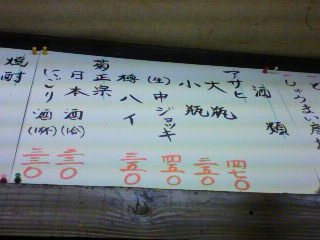 酒類
アサヒ 大瓶 四七〇
小瓶 三五〇
(生)中ジョッキ 四五〇
樽ハイ 三五〇
菊正宗
日本酒(1合) 三三〇
にごり酒(1杯) 三三〇
焼酎